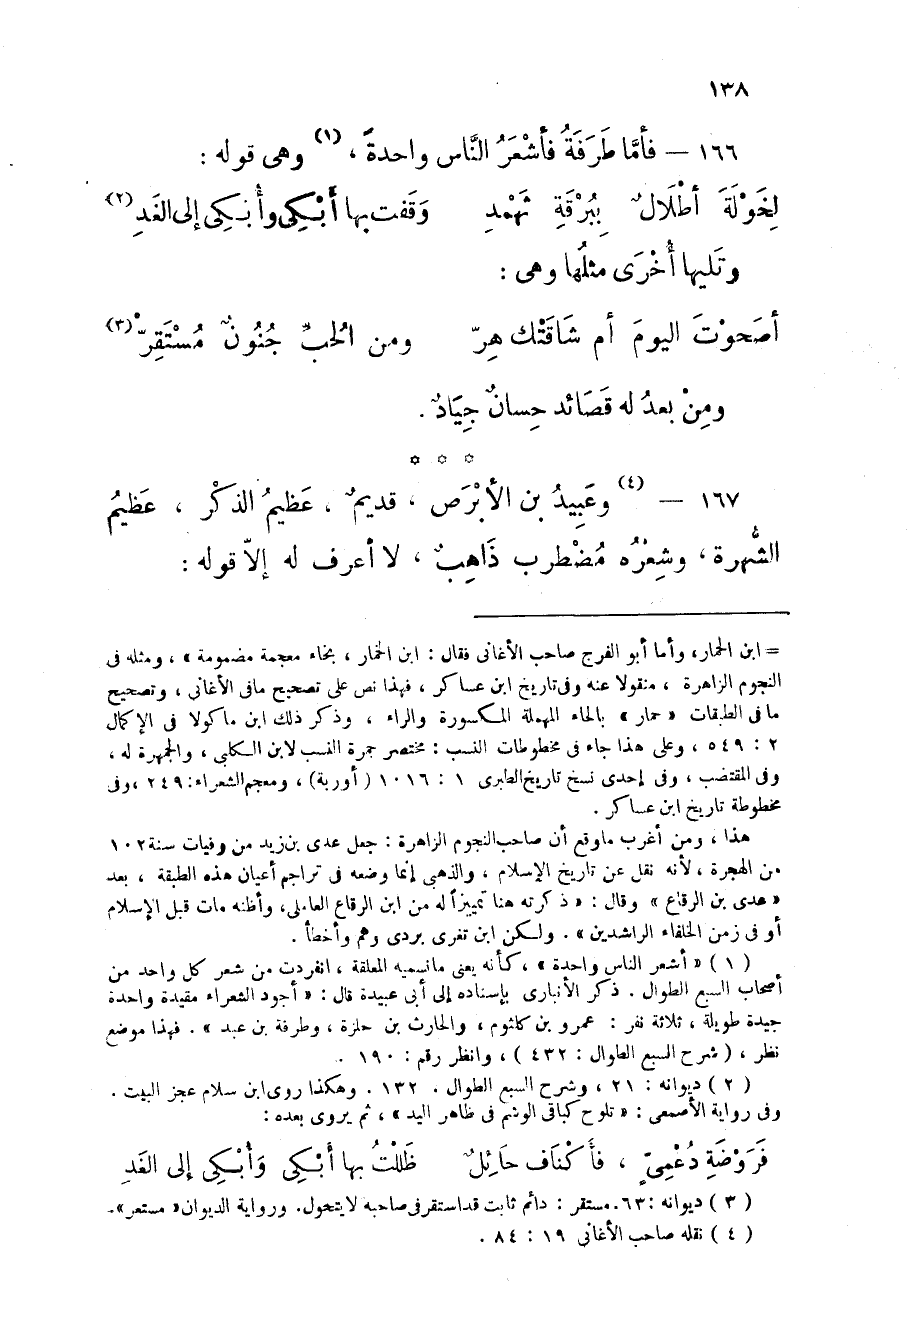 ١٣٨
١٦٦ — فأمَّا طَرَفَةُ فأشْعَرُ النَّاس واحدةً ، (١) وهى قوله :
لِخَوْلَةَ أطْلَالٌ بِبُرْقَةِ ثَهْمَدِ وَقَفت بها أَبْكِى وأُبْكِى إلى الغَدِ (٢)
وتَليها أُخْرَى مثلُها وهى :
أصَحوْتَ اليومَ أم شَاقَتْك هِرّ ومن الحُبِّ جُنُونٌ مُسْتَقِرّْ (٣)
ومِنْ بعدُ له قَصَائد حِسانٌ جِيَادٌ .
* * *
١٦٧ — (٤) وعَبِيدُ بن الأبْرَص ، قديمٌ ، عَظيمُ الذكْر ، عَظيمُ
الشُّهرة ، وشِعْرُه مُضْطرب ذَاهِبٌ ، لا أعرف له إلاّ قوله :
= ابن الحمار، وأما أبو الفرج صاحب الأغانى فقال : ابن الخمار ، بخاء معجمة مضمومة » ، ومثله فى
النجوم الزاهرة ، منقولا عنه وفى تاريخ ابن عساكر ، فهذا نص على تصحيح مافى الأغانى ، وتصحيح
ما فى الطبقات « حمار » بالحاء المهملة المكسورة والراء ، وذكر ذلك ابن ماكولا فى الإكمال
٢ : ٥٤٩ ، وعلى هذا جاء فى مخطوطات النسب : مختصر جمرة النسب لابن الكلبى ، والجمهرة له ،
وفى المقتضب ، وفى إحدى نسخ تاريخ الطبرى ١ : ١٠١٦ ( أوربة) ، ومعجم الشعراء : ٢٤٩ ،وفى
مخطوطة تاريخ ابن عساكر .
هذا ، ومن أغرب ماوقع أن صاحب النجوم الزاهرة : جعل عدى بن زيد من وفيات سنة ١٠٢
من الهجرة ، لأنه نقل عن تاريخ الإسلام ، والذهبى إنما وضعه فى تراجم أعيان هذه الطبقة ، بعد
« عدى بن الرقاع » وقال : « ذكرته هنا تمييزاً له من ابن الرقاع العاملى، وأظنه مات قبل الإسلام
أو فى زمن الخلفاء الراشدين » . ولكن ابن تغرى بردى وهم وأخطأ .
( ١ ) « أشعر الناس واحدة » ، كأنه يعنى مانسميه المعلقة ، انفردت من شعر كل واحد من
أصحاب السبع الطوال . ذكر الأنبارى بإسناده إلى أبى عبيدة قال : « أجود الشعراء مقيدة واحدة
جيدة طويلة ، ثلاثة نفر : عمرو بن كلثوم ، والحارث بن حلزة ، وطرفة بن عبد » . فهذا موضع
نظر ، ( شرح السبع الطوال : ٤٣٢ ) ، وانظر رقم : ١٩٠ .
( ٢ ) ديوانه : ٢١ ، وشرح السبع الطوال . ١٣٢ . وهكذا روى ابن سلام عجز البيت .
وفى رواية الأصمعى : « تلوح كباقى الوشم فى ظاهر اليد » ، ثم يروى بعده :
فَرَوْضَةِ دُعْمِىٍّ ، فأَكْنَافِ حَائِلٌ ظَلَلْتُ بها أَبْكِى وَأُبْكِى إلى الغَدِ
( ٣ ) ديوانه :٦٣. مستقر : دائم ثابت قد استقر فى صاحبه لا يتحول. ورواية الديوان « مستعر ».
( ٤ ) نقله صاحب الأغانى ١٩ : ٨٤ .